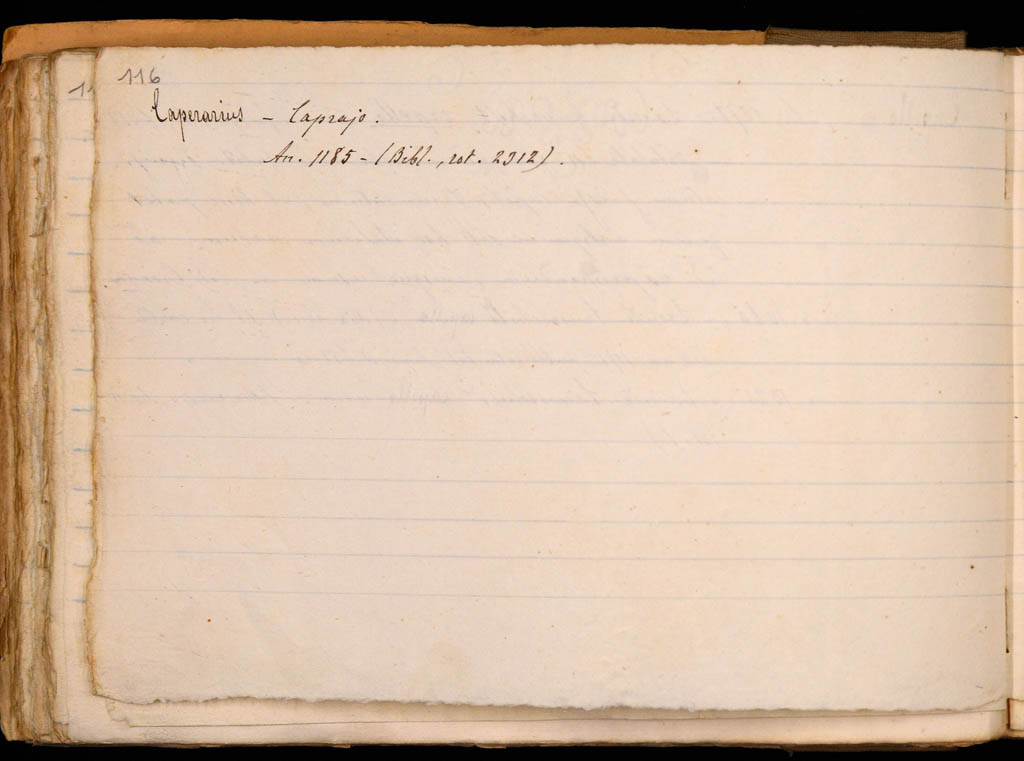 116
Caperarius - Caprajo.
An. 1185 - (Bibl., rot. 2912).